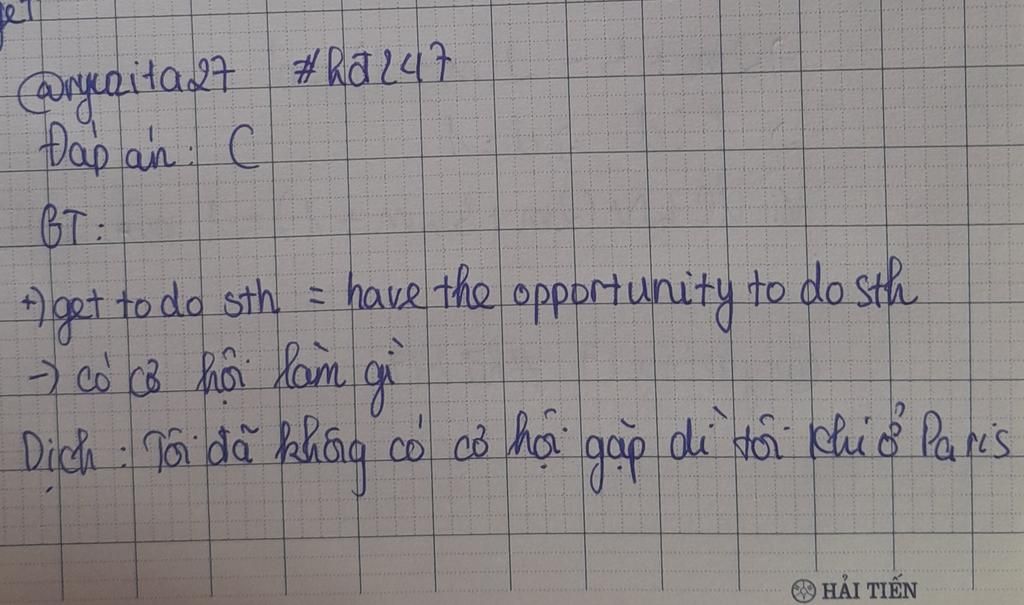 @nyucita27 #hđ247
Đáp án: C
BT:
+) get to do sth = have the opportunity to do sth
→ có cơ hội làm gì
Dịch: Tôi đã không có cơ hội gặp dì tôi khi ở Paris
HẢI TIẾN